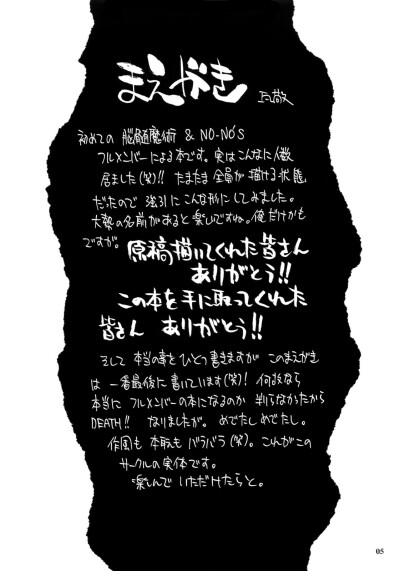 まえがき
瓦敬
初めての 脳髄魔術 & NO-NO'S
フルメンバーによる本です。実はこんなに人数
居ました(笑)!! たまたま全員が描ける状態
だったので 強引にこんな形にしてみました。
大勢の名前があると楽しいですね。俺だけかも
ですが。
原稿描いてくれた皆さん
ありがとう!!
この本を手に取ってくれた
皆さん ありがとう!!
そして 本当の事をひとつ書きますが このまえがき
は 一番最後に書いています(笑)! 何故なら
本当に フルメンバーの本になるのか 判らなかったから
DEATH!! なりましたが。めでたしめでたし。
作風も 本気も バラバラ(笑)。これがこの
サークルの実体です。
楽しんで いただけたらと。
05